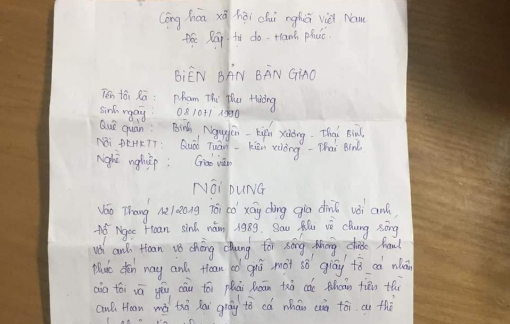 Cộng hòa xã hội chủ nghĩa Việt Nam
Độc lập - tự do - Hạnh phúc.
BIÊN BẢN BÀN GIAO
Tên tôi là : Phạm Thị Thu Hường
Sinh ngày : 08/07/1990
Quê quán : Bình Nguyên - Kiến Xương - Thái Bình
Nơi ĐKHKTT: Quốc Tuấn - Kiến Xương - Thái Bình
Nghề nghiệp : Giáo viên
NỘI DUNG
Vào Tháng 12/2019 Tôi có xây dựng gia đình với anh
Đỗ Ngọc Hoan sinh năm 1989. Sau khi về chung sống
với anh Hoan vợ chồng chúng tôi sống không được hạnh
phúc đến nay anh Hoan có giữ một số giấy tờ cá nhân
của tôi và yêu cầu tôi phải hoàn trả các khoản tiền thì
anh Hoan mới trả lại giấy tờ cá nhân của tôi. cụ thể